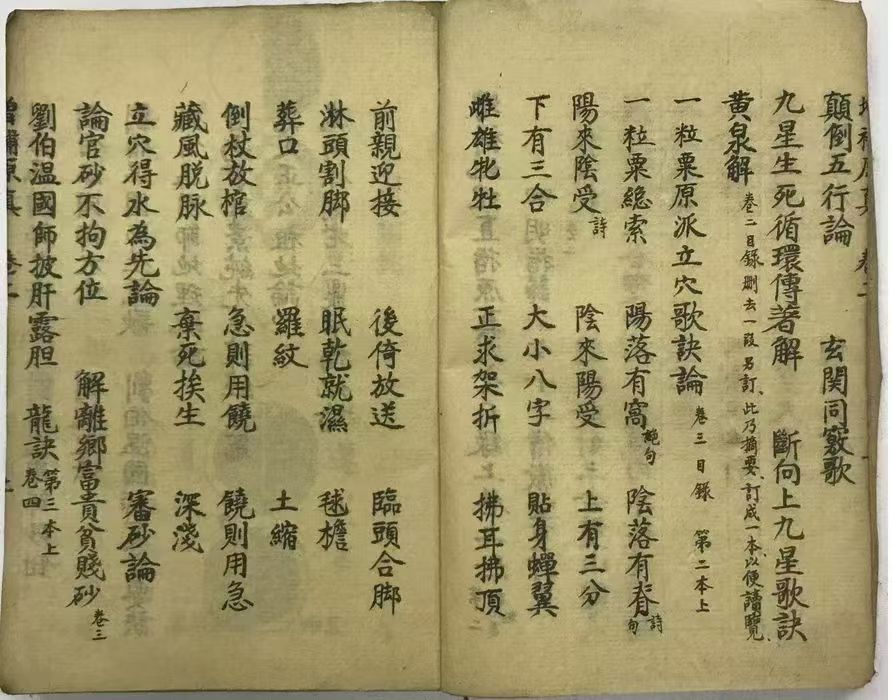 顛倒五行論 玄関同竅歌
九星生死循環傳著解 斷向上九星歌訣
黃泉解 卷二目錄刪去一段另訂、此乃摘要、訂成一本、以便讀覽、
一粒粟原派立穴歌訣論 卷三目錄 第二本上
一粒粟總索 陽落有窩 絕句 陰落有脊 詩句
陽來陰受 詩 陰來陽受 上有三分
下有三合 大小八字 貼身蟬翼
雌雄牝牡 正求架折 拂耳拂頂
前親迎接 後倚放送 臨頭合脚
淋頭割脚 眠乾就濕 毬檐
葬口 羅紋 土縮
倒杖放棺 急則用饒 饒則用急
藏風脱脉 棄死挨生 深淺
立穴得水為先論 審砂論
論官砂不拘方位 解離鄉富貴貧賤砂 卷三
劉伯温國師披肝露胆 龍訣 第三本上 卷四